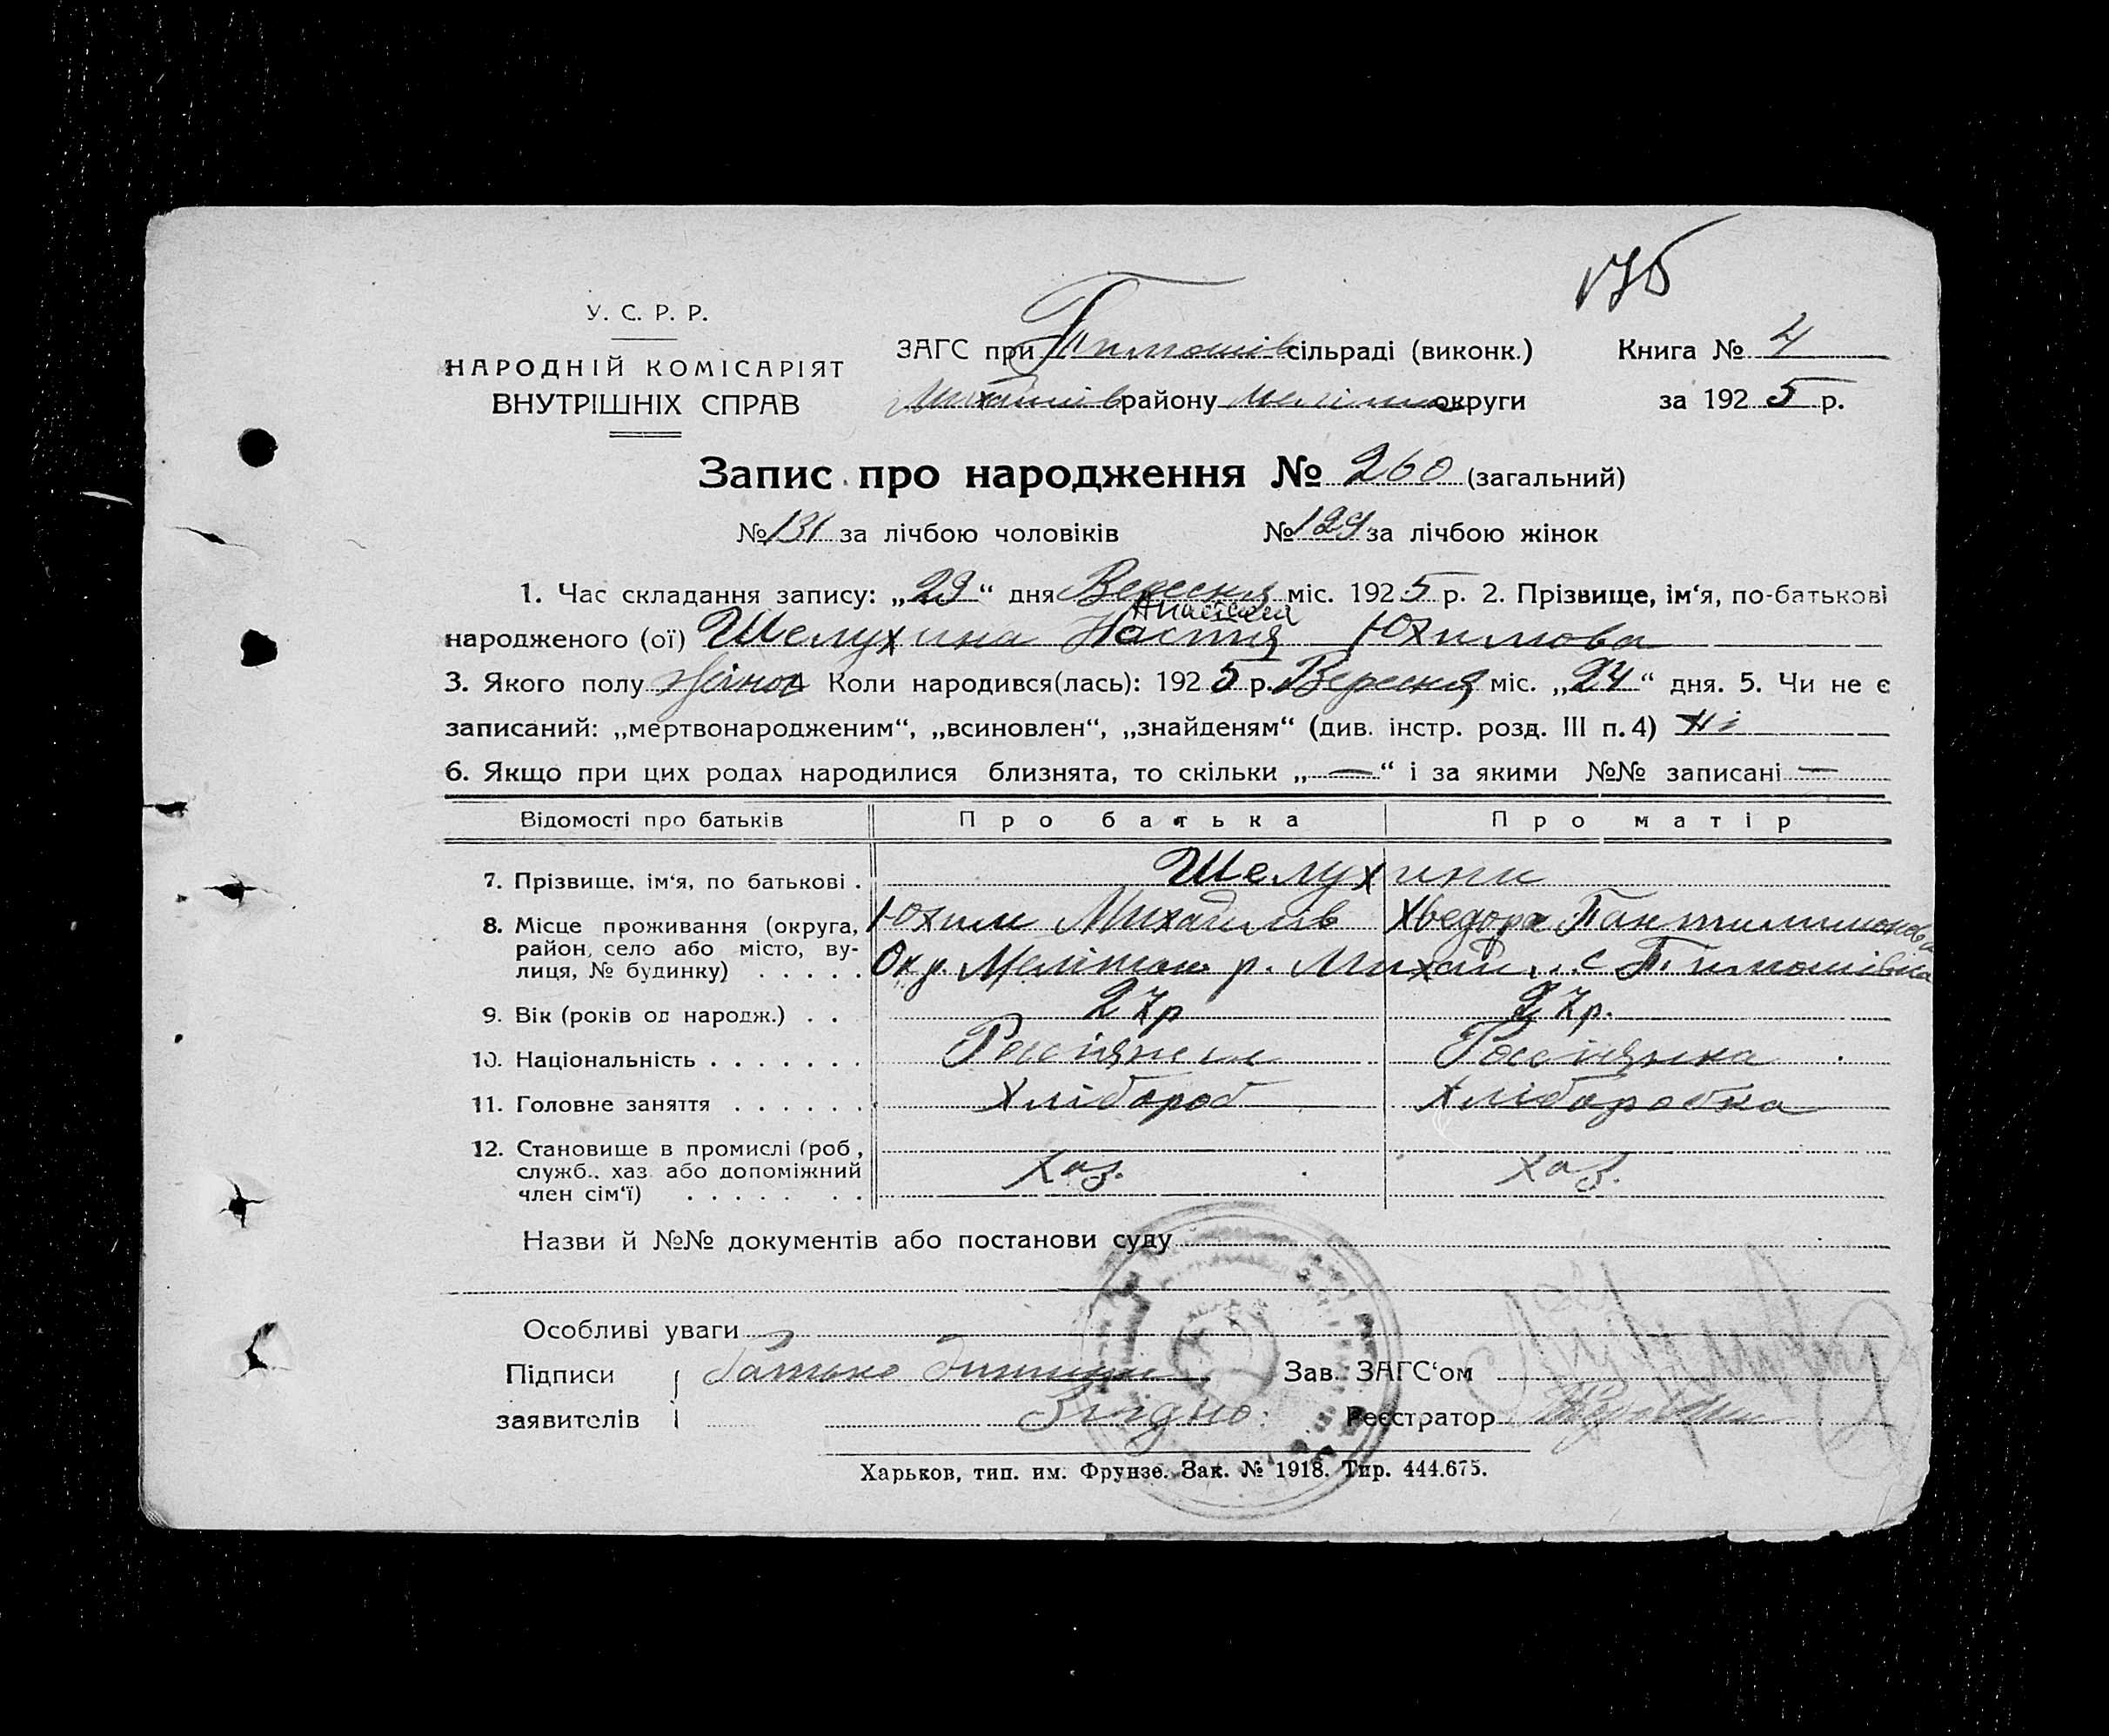 У. С. Р. Р.
НАРОДНІЙ КОМІСАРІЯТ
ВНУТРІШНІХ СПРАВ
ЗАГС при Тимошів сільраді (виконк.)
Книга № 4
Михайлів району Меліт округи
за 1925 р.
Запис про народження № 260 (загальний)
№ 131 за лічбою чоловіків № 129 за лічбою жінок
1. Час складання запису: „29“ дня Вересня міс. 1925 р. 2. Прізвище, ім‘я, по-батькові
Анастасія
народженого (ої) Шелухина Настя Юхимова
3. Якого полу жіноч Коли народився(лась): 1925 р. Вересня міс. „24“ дня. 5. Чи не є
записаний: „мертвонародженим“, „всиновлен“, „знайденям“ (див. інстр. розд. III п. 4) ні
6. Якщо при цих родах народилися близнята, то скільки „—“ і за якими №№ записані —
Відомості про батьків Про батька Про матір
7. Прізвище, ім‘я, по батькові . Шелухини
Юхим Михайлів Хведора Пантилимонова
8. Місце проживання (округа, район, село або місто, вулиця, № будинку) . . . . . Окр. Мелітоп р. Михайл. с Тимошівка
9. Вік (років од народж.) . . 27р 27р.
10. Національність . . . . . . . Россіянин Россіянка
11. Головне заняття . . . . . . Хлібороб Хлібаробка
12. Становище в промислі (роб, служб., хаз або допоміжний член сім‘ї) . . . . . . . Хаз. Хаз.
Назви й №№ документів або постанови суду
Особливі уваги
Підписи Батько Зав. ЗАГС‘ом
заявителів Згідно: Реєстратор
Харьков, тип. им. Фрунзе. Зак. № 1918. Тир. 444.675.